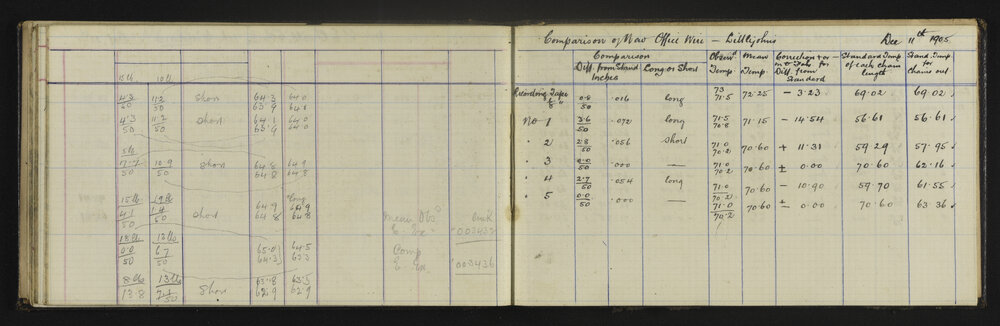 15 lb 10 lb
4.3 11.2 Short 64.3 64.0
50 50 63.9 64.1
4.3 11.2 Short 64.1 64.0
50 50 63.9 64.0
5 lb
10.9 Short 64.8 64.9
50 50 64.8 64.8
15 lb 19 lb long
4.1 1.4 Short 64.9 64.9
50 50 64.8 64.8
Mean Obs
18 lb 13 lb
0.0 6.7 65.0 64.5
50 50 64.3 63.3
Comp
.003436
8 lb 13 lb 63.8 63.3
13.8 50 Short 62.9 62.9
Comparison of New Office Wire — Littlejohns Dec 11th 1905
Comparison
Diff. from Stand Inches Long or Short Observd Temp. Mean Temp. Correction + or - in Tens for Diff. from Standard Standard Temp. of each chain length Stand. Temp. for Chains out
Recording Tapes 0.8/50 .016 long 73 71.5 72.25 - 3.23 69.02 69.02
No 1 3.6/50 .072 long 71.5 70.8 71.15 - 14.54 56.61 56.61
" 2 2.8/50 .056 short 71.0 70.2 70.60 + 11.31 59.29 57.95
" 3 0.0/50 .000 — 71.0 70.2 70.60 ± 0.00 70.60 62.16
" 4 2.7/50 .054 long 71.0 70.2 70.60 - 10.90 59.70 61.55
" 5 0.0/50 .000 — 71.0 70.2 70.60 ± 0.00 70.60 63.36